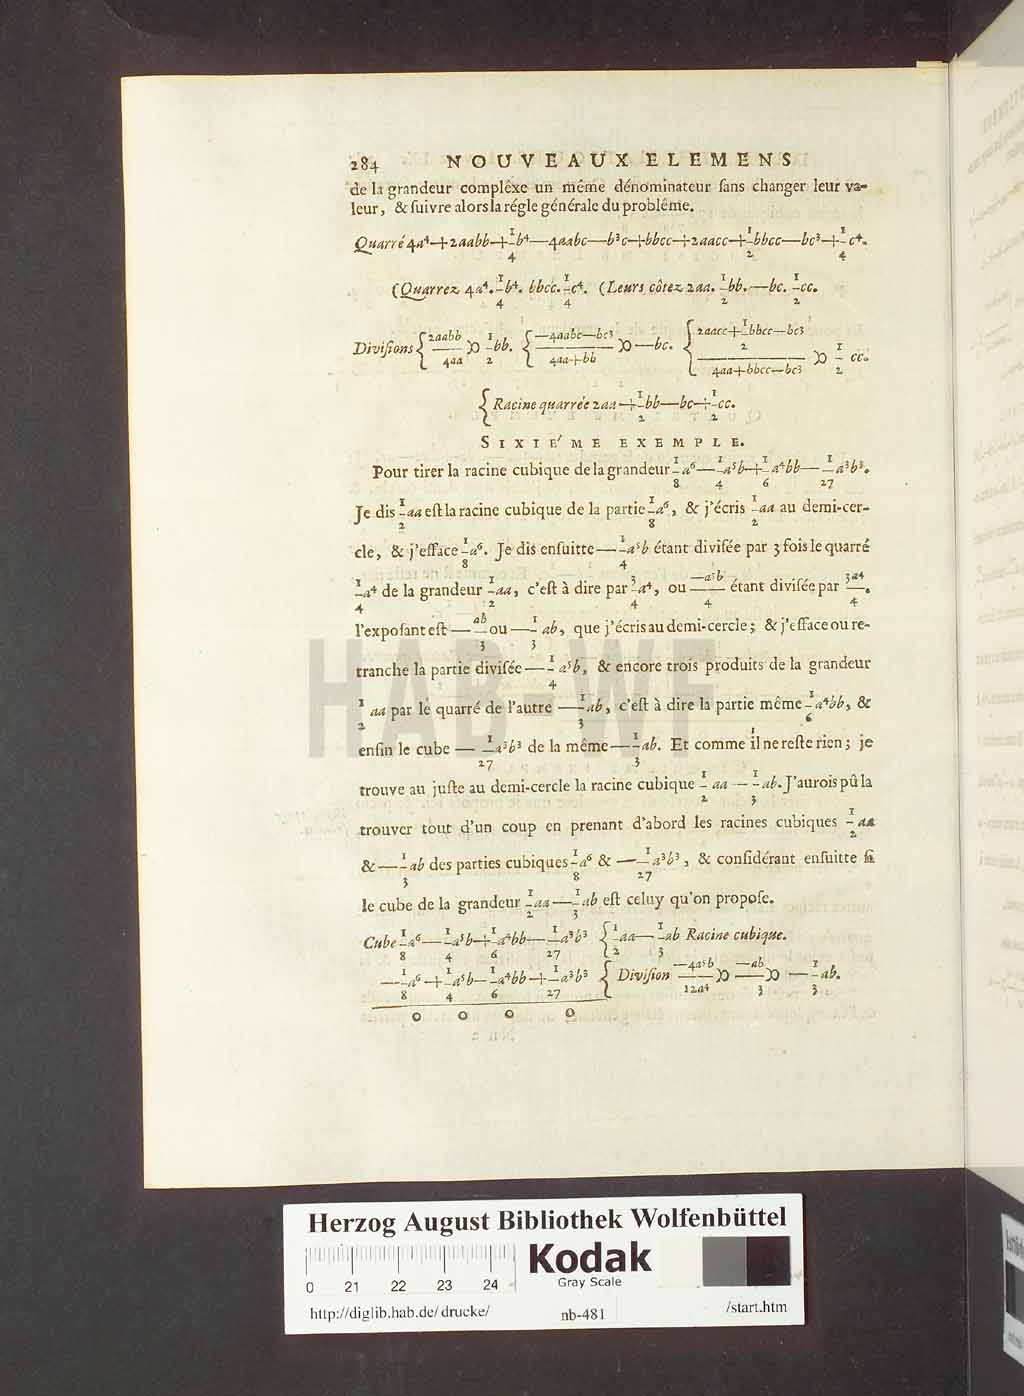 284 NOUVEAUX ELEMENS
de la grandeur complêxe un même dénominateur ſans changer leur va-
leur, & ſuivre alors la régle générale du problême.
Quarré 4a⁴+2aabb+1/4b⁴—4aabc—b³c+bbcc+2aacc+1/2bbcc—bc³+1/4c⁴.
(Quarrez 4a⁴. 1/4b⁴. bbcc. 1/4c⁴. (Leurs côtez 2aa. 1/2bb.—bc. 1/2cc.
Diviſions { 2aabb/4aa ꝏ 1/2bb. { —4aabc—bc³/4aa+bb ꝏ —bc. { 2aacc+1/2bbcc—bc³/4aa+bbcc—bc³ ꝏ 1/2 cc.
{ Racine quarrée 2aa+1/2bb—bc+1/2cc.
SIXIE'ME EXEMPLE.
Pour tirer la racine cubique de la grandeur 1/8a⁶—1/4a⁵b+1/6a⁴bb—1/27a³b³.
Je dis 1/2aa eſt la racine cubique de la partie 1/8a⁶, & j'écris 1/2aa au demi-cer-
cle, & j'efface 1/8a⁶. Je dis enſuitte —1/4a⁵b étant diviſée par 3 fois le quarré
1/4a⁴ de la grandeur 1/2aa, c'eſt à dire par 3/4a⁴, ou —a⁵b/4 étant diviſée par 3a⁴/4.
l'expoſant eſt —ab/3 ou —1/3 ab, que j'écris au demi-cercle; & j'efface ou re-
tranche la partie diviſée —1/4 a⁵b, & encore trois produits de la grandeur
1/2 aa par le quarré de l'autre —1/3ab, c'eſt à dire la partie même 1/6a⁴bb, &
enfin le cube —1/27a³b³ de la même —1/3ab. Et comme il ne reſte rien; je
trouve au juſte au demi-cercle la racine cubique 1/2 aa —1/3ab. J'aurois pû la
trouver tout d'un coup en prenant d'abord les racines cubiques 1/2aa
& —1/3ab des parties cubiques 1/8a⁶ & —1/27a³b³, & conſidérant enſuitte ſi
le cube de la grandeur 1/2aa—1/3ab eſt celuy qu'on propoſe.
Cube 1/8a⁶—1/4a⁵b+1/6a⁴bb—1/27a³b³ { 1/2aa—1/3ab Racine cubique.
—1/8a⁶+1/4a⁵b—1/6a⁴bb+1/27a³b³ { Diviſion —4a⁵b/12a⁴ ꝏ —ab/3 ꝏ —1/3ab.
0 0 0 0
HAB-WF
Herzog August Bibliothek Wolfenbüttel
Kodak
Gray Scale
0 21 22 23 24
http://diglib.hab.de/drucke/ nb-481 /start.htm